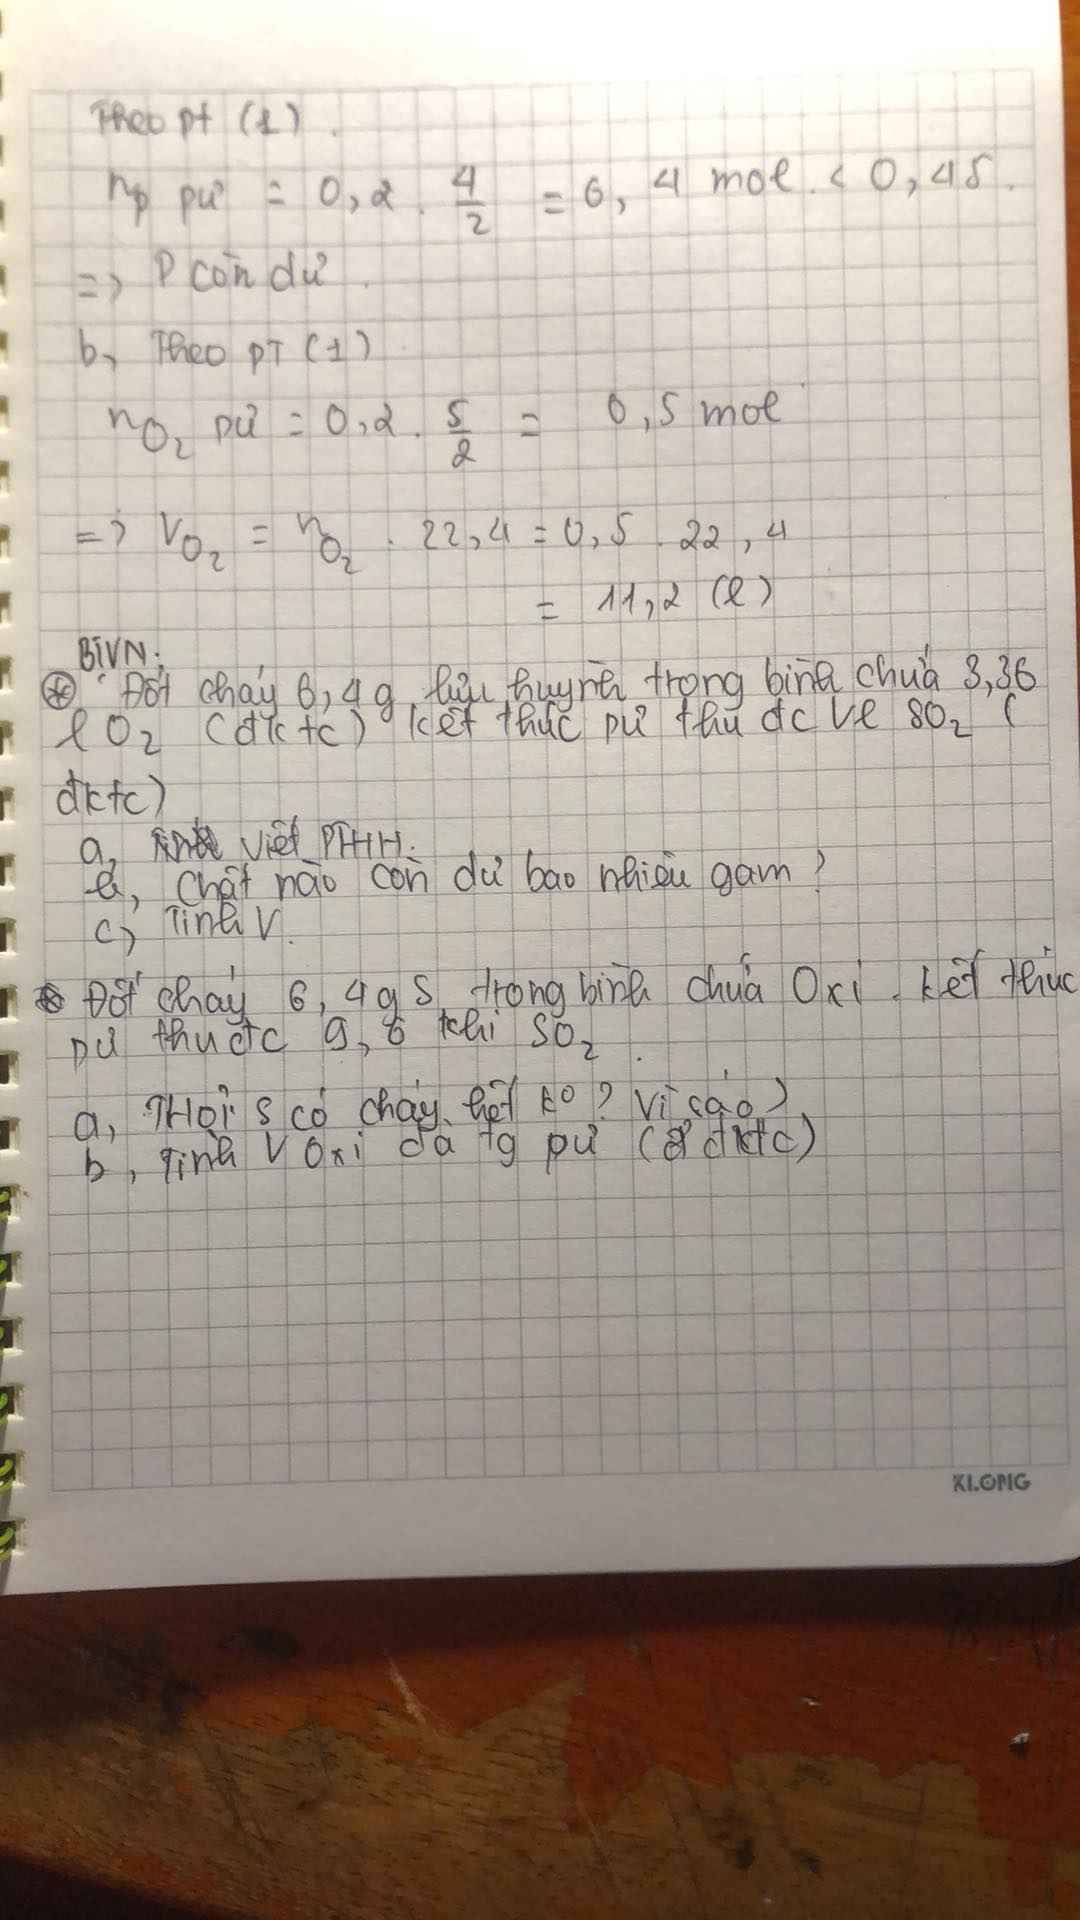 Theo pt (1).
nP pứ = 0,2 . 4/2 = 0,4 mol. < 0,45.
=> P còn dư.
b, Theo PT (1)
nO2 pứ = 0,2 . 5/2 = 0,5 mol
=> VO2 = nO2 . 22,4 = 0,5 . 22,4
= 11,2 (l)
BTVN:
Đốt cháy 6,4g lưu huỳnh trong bình chứa 3,36
l O2 (đktc) kết thúc pứ thu đc Vl SO2 (
đktc)
a, Viết PTHH.
b, Chất nào còn dư bao nhiêu gam?
c, Tính V.
Đốt cháy 6,4g S trong bình chứa Oxi. kết thúc
pứ thu đc 9,6 khí SO2.
a, Hỏi S có cháy hết ko? Vì sao?
b, Tính V Oxi đã tg pứ (ở đktc)
KLONG